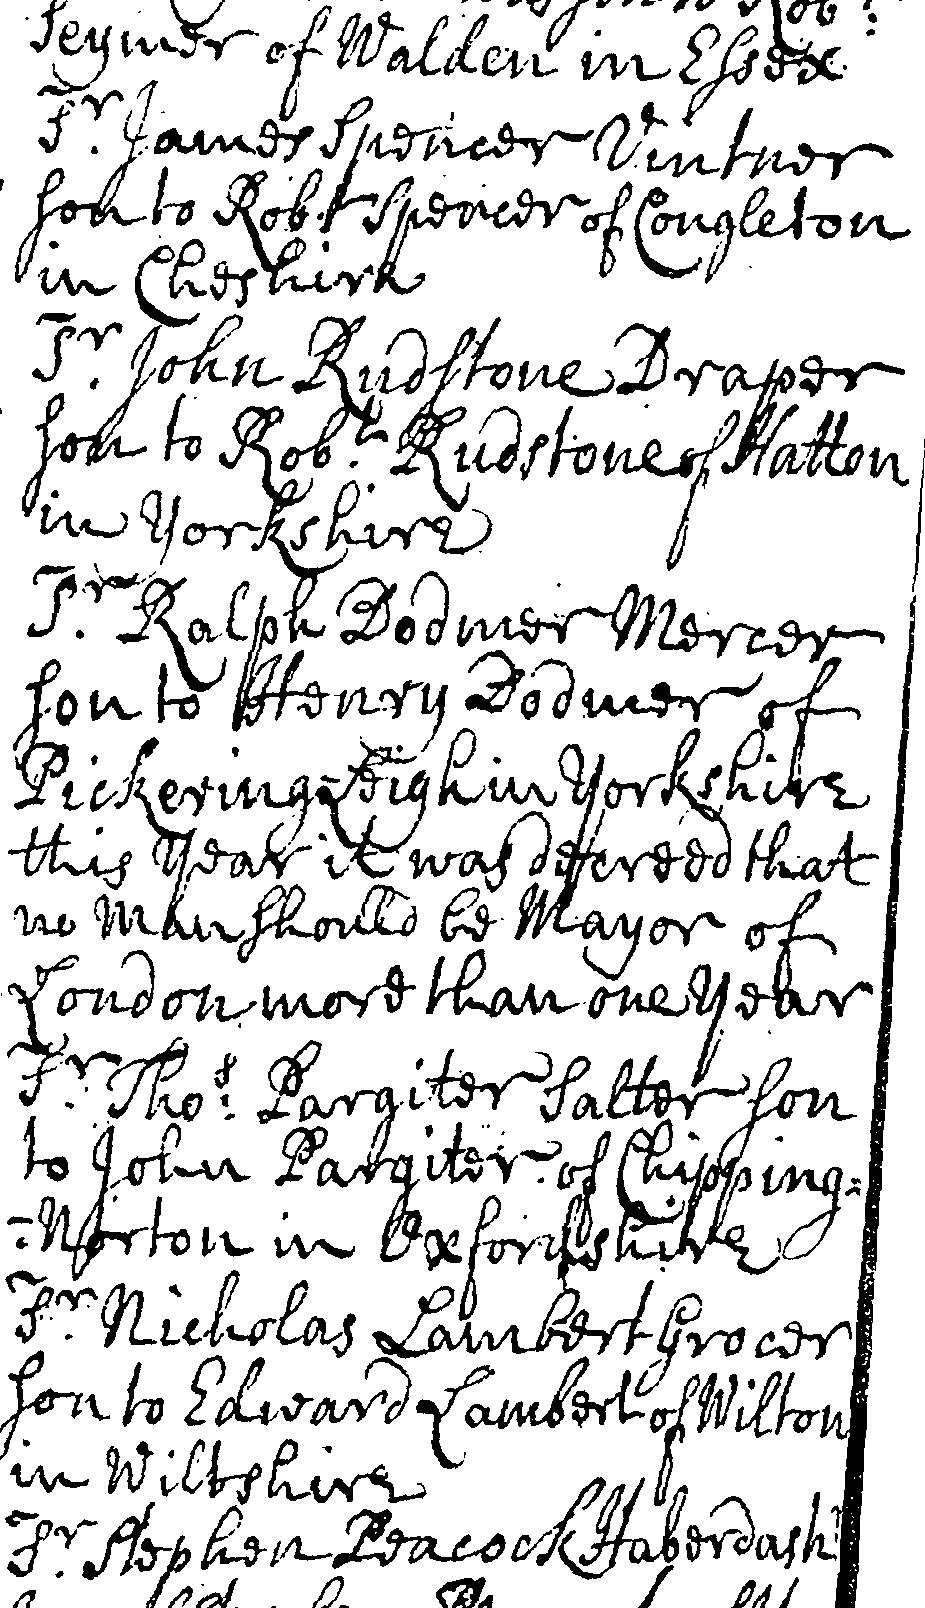 Rob.t
Seymer of Walden in Essex
Sr. James Spencer Vintner
Son to Robt Spencer of Congleton
in Cheshire
Sr. John Rudstone Draper
Son to Rob.t Rudstone of Hatton
in Yorkshire
Sr. Ralph Dodmer Mercer
Son to Henry Dodmer of
Pickering=Leigh in Yorkshire
this Year it was decreed that
no Man should be Mayor of
London more than one Year
Sr. Thos: Pargiter Salter Son
to John Pargiter of Chipping=
=Norton in Oxfordshire
Sr. Nicholas Lambert Grocer
Son to Edward Lambert of Wilton
in Wiltshire
Sr. Stephen Peacock Haberdashr